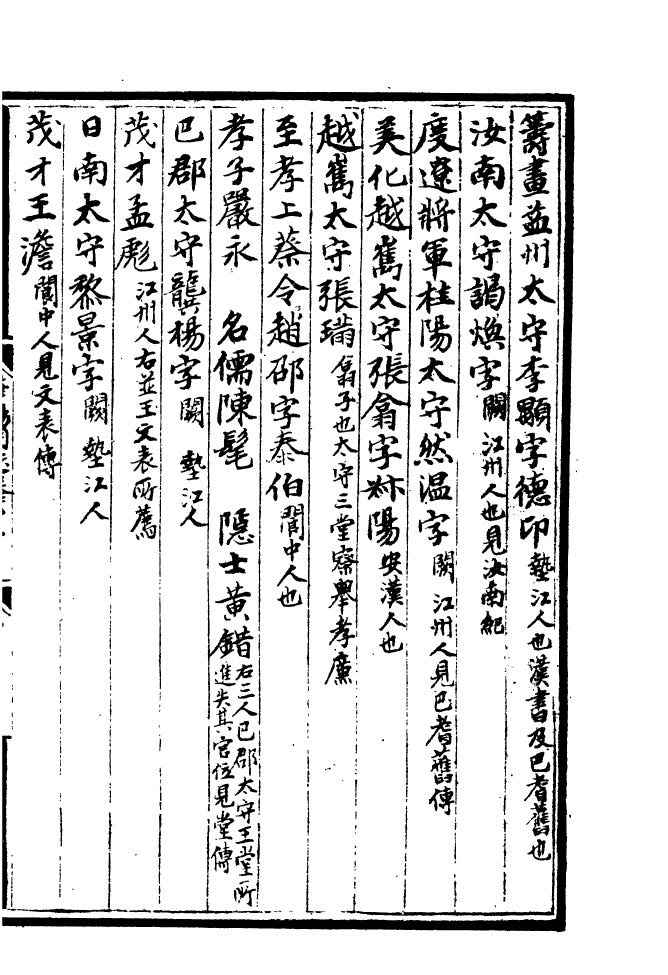 籌畫益州太守李顒字德印墊江人也漢書及巴耆舊也
汝南太守謁煥字闕江州人也見汝南紀
度遼將軍桂陽太守然温字闕江州人見巴耆舊傳
美化越嶲太守張翕字㕘陽安漢人也
越嶲太守張璊翕子也太守三堂察舉孝廉
至孝上蔡令趙邵字泰伯閬中人也
孝子嚴永 名儒陳髦 隱士黃錯右三人巴郡太守王堂所進失其官位見堂傳
巴郡太守龔楊字闕墊江人
茂才孟彪江州人右並王文表所薦
日南太守黎景字闕墊江人
茂才王澹閬中人見文表傳